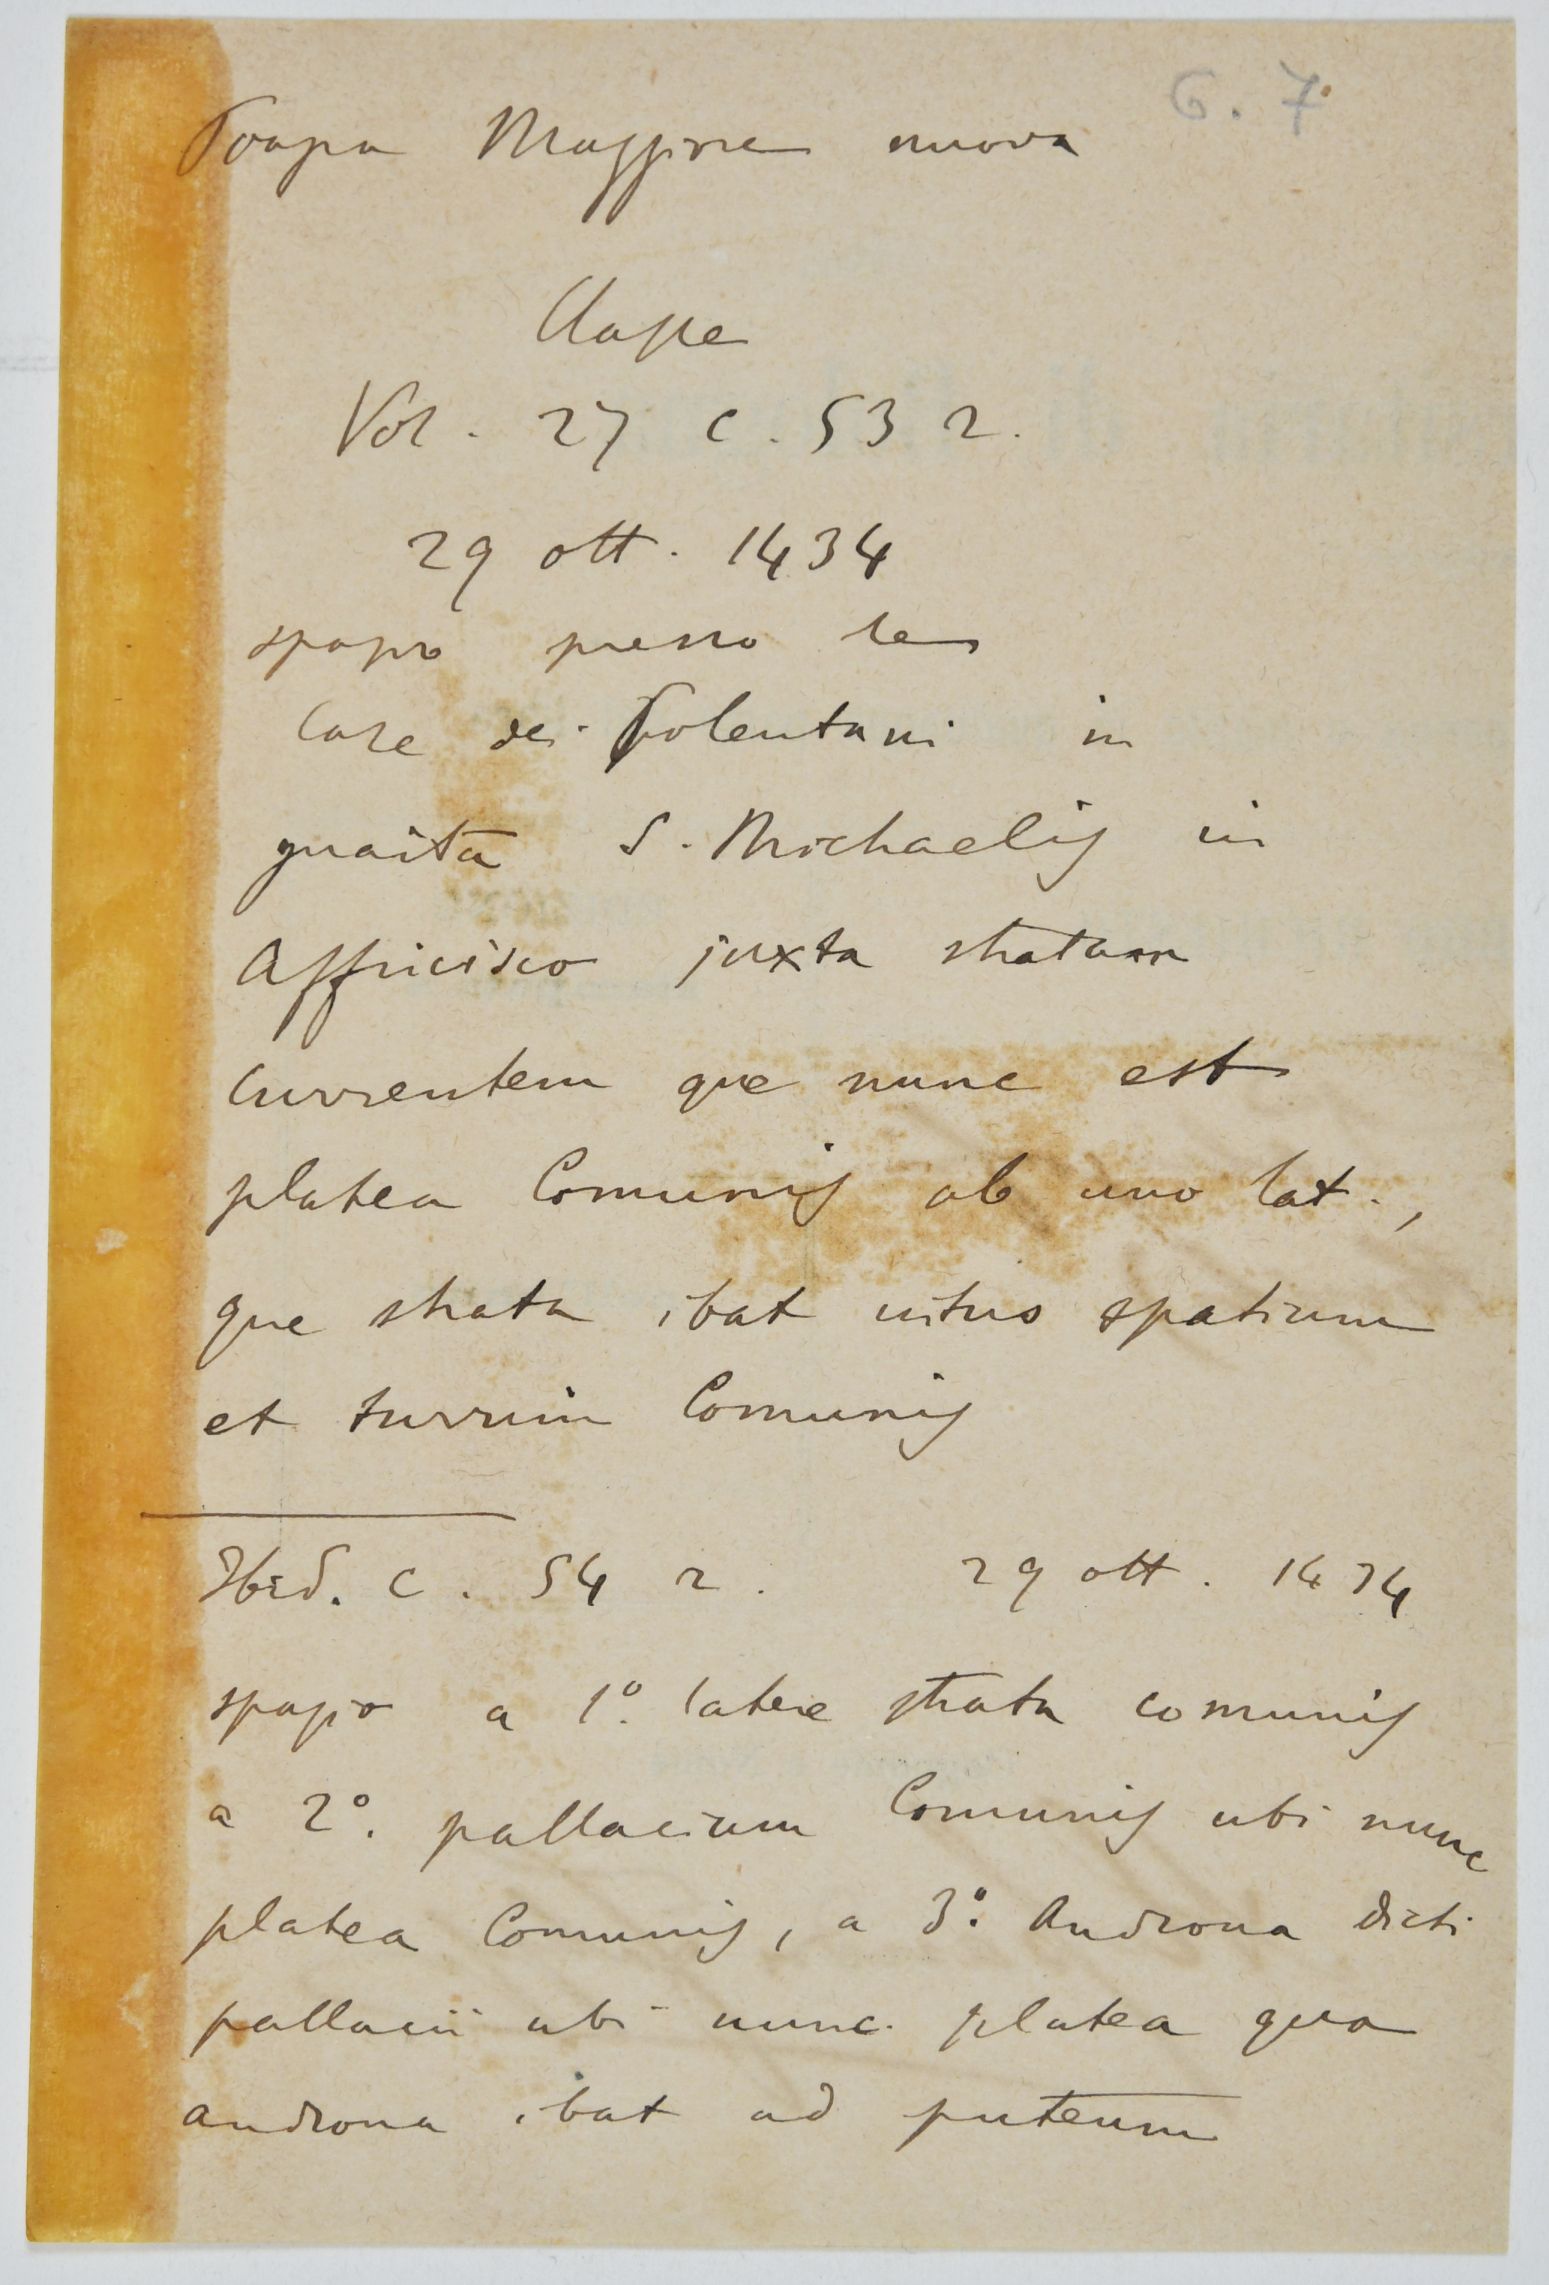 6.7
Piazza Maggiore nuova
Classe
Vol. 27 c. 53 r.
29 ott. 1434
spazio presso le
Case dei Polentani in
guaita S. Michaelis in
Affricisco juxta stratam
currentem que nunc est
platea Comunis ab uno lat.,
que strata ibat intus spatium
et turrim Comunis
Ibid. c. 54 r. 29 ott. 1434
spazio a 1º. latere strata comunis
a 2º. pallacium Comunis ubi nunc
platea Comunis, a 3º. Androna dicti
pallacii ubi nunc platea qua
androna ibat ad puteum